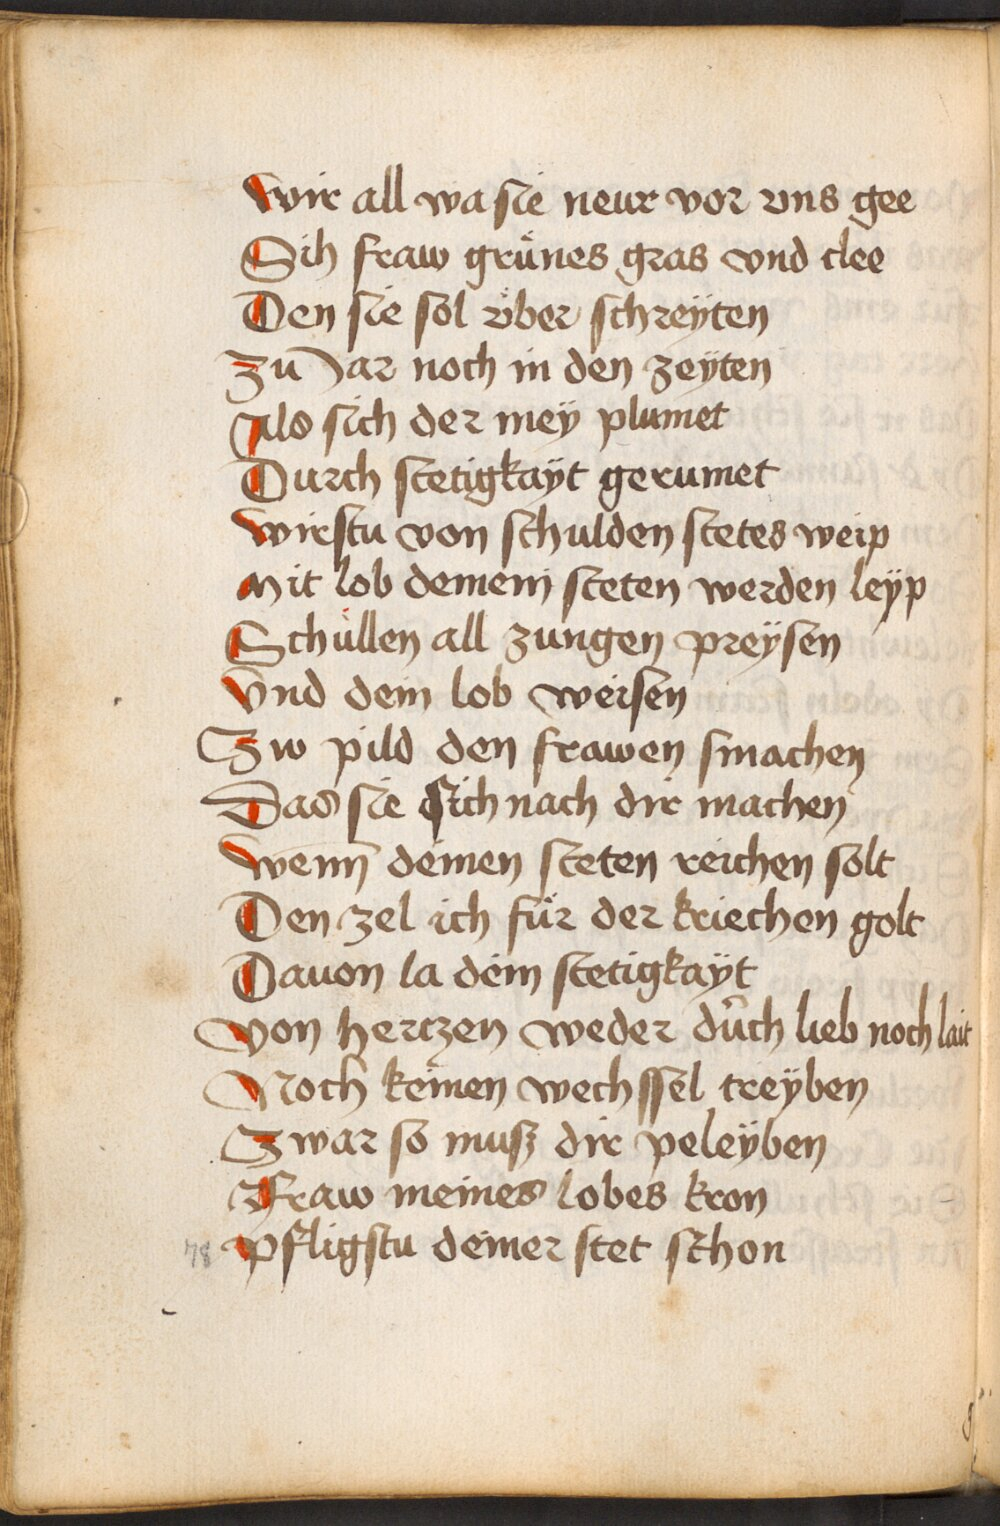 Wir all wa sie neur vor vns gee
Sih fraw grůnes gras vnd clee
Den sie sol vͤber schreÿten
Zu Jar noch in den zeÿten
Als sich der meÿ plumet
Durch stetigkaÿt gerumet
Wirstu von schulden stetes weip
Mit lob deinem steten werden leÿp
Schu̇llen all zungen preÿsen
Vnd dein lob weisen
Zw pild den frawen smachen
Das sie sich nach dir machen
Wenn deinen steten reichen solt
Den zel ich fu̇r der kriechen golt
Dauon la dein stetigkaÿt
Von hertzen weder durch lieb noch lait
Noch keinen wechssel treÿben
Zwar so musz dir peleÿben
Fraw meines lobes kron
Pfligstu deiner stet schon
78